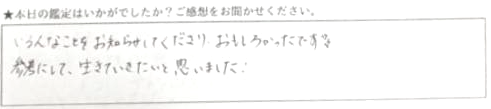 ★本日の鑑定はいかがでしたか？ご感想をお聞かせください。
いろんなことをお知らせしてくださり、おもしろかったです。
参考にして、生きていきたいと思いました！